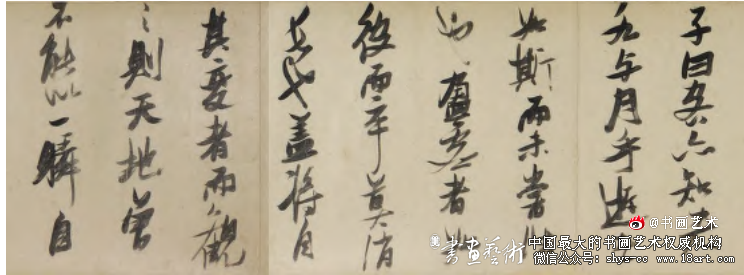 子曰客亦知夫
水与月乎逝
如斯而未嘗往
也盈虛者
彼而卒莫消
長也蓋將自
其變者而觀
之則天地曾
不能以一瞬自
@书画艺术
書畫藝術
中国最大的书画艺术权威机构
微信公众号：shys-cc www.18art.com